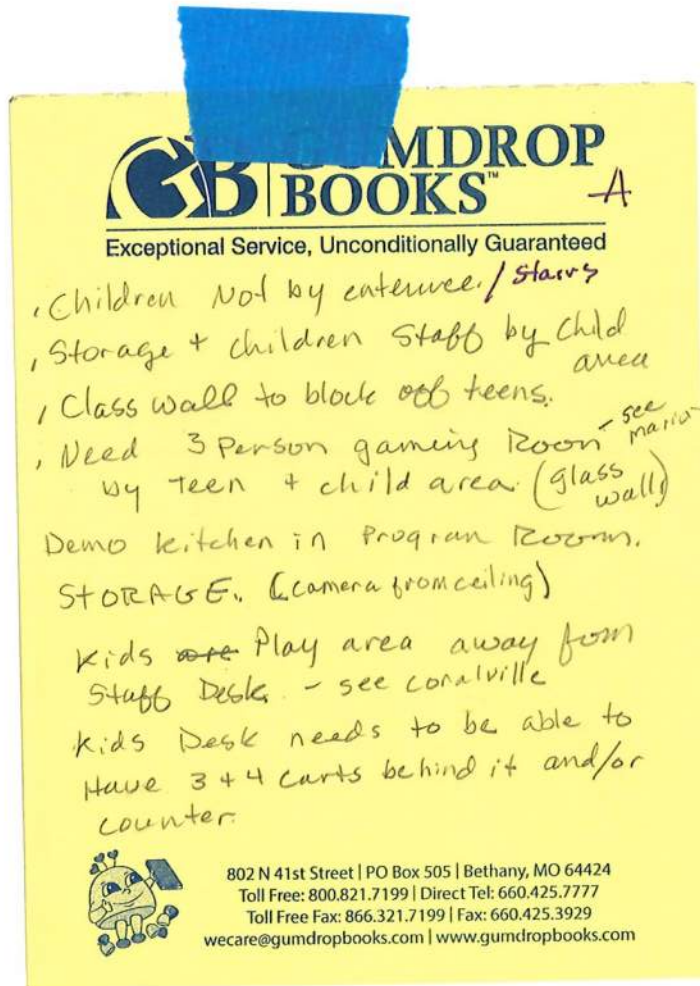 GB GUMDROP
BOOKS™
A
Exceptional Service, Unconditionally Guaranteed
, Children Not by enterence. / Stairs
, Storage + children Staff by Child
area
, Class wall to block off teens.
, Need 3 Person gaming Room - see
mario
by Teen + child area. (glass
walls)
Demo kitchen in Program Room.
STORAGE. (camera from ceiling)
Kids are Play area away from
Staff Desk. - see coralville
Kids Desk needs to be able to
Have 3 + 4 carts behind it and/or
counter.
802 N 41st Street | PO Box 505 | Bethany, MO 64424
Toll Free: 800.821.7199 | Direct Tel: 660.425.7777
Toll Free Fax: 866.321.7199 | Fax: 660.425.3929
wecare@gumdropbooks.com | www.gumdropbooks.com